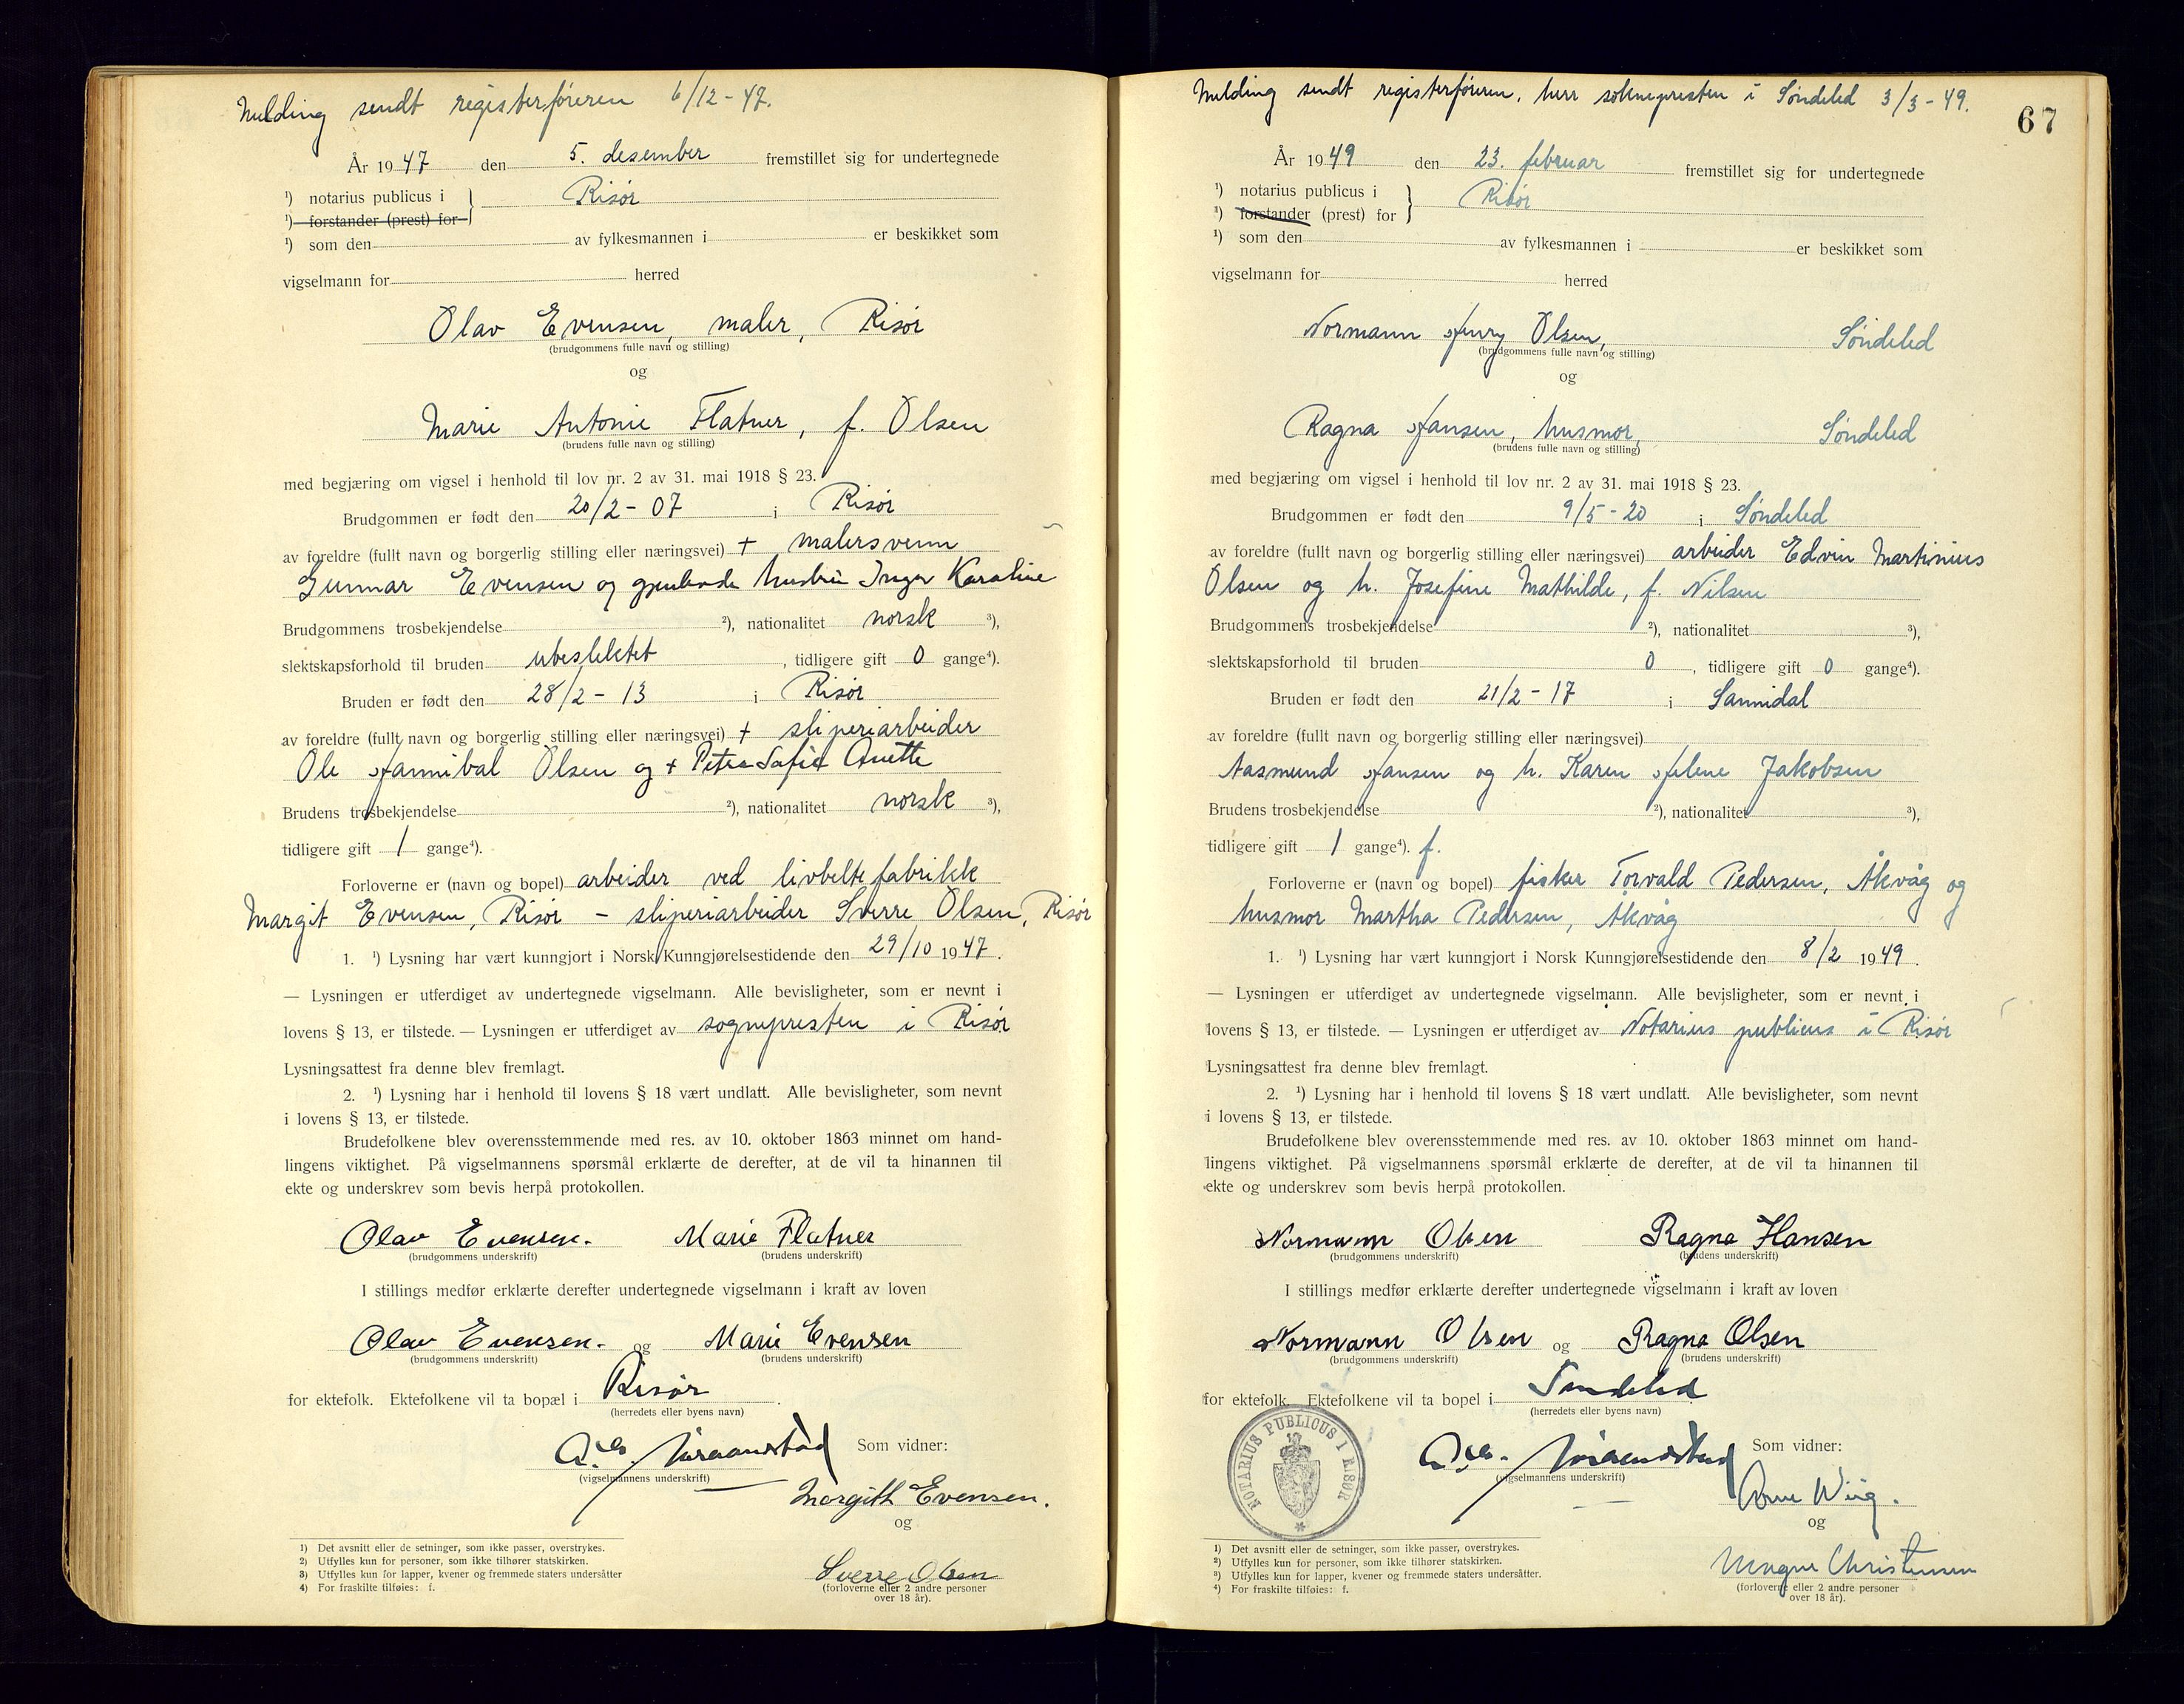 Melding sendt registerføreren 6/12 - 47.
År 1947 den 5. desember fremstillet sig for undertegnede
¹) notarius publicus i } Risør
¹) forstander (prest) for
¹) som den av fylkesmannen i er beskikket som
vigselmann for herred
Olav Evensen, maler, Risør
(brudgommens fulle navn og stilling)
og
Marie Antonie Flatner, f. Olsen
(brudens fulle navn og stilling)
med begjæring om vigsel i henhold til lov nr. 2 av 31. mai 1918 § 23.
Brudgommen er født den 20/2 - 07 i Risør
av foreldre (fullt navn og borgerlig stilling eller næringsvei) + malersvenn
Gunnar Evensen og gjenlevende hustru Inger Karoline
Brudgommens trosbekjendelse ²), nationalitet norsk ³),
slektskapsforhold til bruden ubeslektet, tidligere gift 0 gange⁴).
Bruden er født den 28/2 - 13 i Risør
av foreldre (fullt navn og borgerlig stilling eller næringsvei) + sliperiarbeider
Ole Hannibal Olsen og + Petra Sofie Anette
Brudens trosbekjendelse ²), nationalitet norsk ³),
tidligere gift 1 gange⁴).
Forloverne er (navn og bopel) arbeider ved livbeltefabrikk
Margit Evensen, Risør - sliperiarbeider Sverre Olsen, Risør
1. ¹) Lysning har vært kunngjort i Norsk Kunngjørelsestidende den 29/10 1947.
— Lysningen er utferdiget av undertegnede vigselmann. Alle bevisligheter, som er nevnt i
lovens § 13, er tilstede. — Lysningen er utferdiget av sognepresten i Risør
Lysningsattest fra denne blev fremlagt.
2. ¹) Lysning har i henhold til lovens § 18 vært undlatt. Alle bevisligheter, som nevnt
i lovens § 13, er tilstede.
Brudefolkene blev overensstemmende med res. av 10. oktober 1863 minnet om hand-
lingens viktighet. På vigselmannens spørsmål erklærte de derefter, at de vil ta hinannen til
ekte og underskrev som bevis herpå protokollen.
Olav Evensen. Marie Flatner
(brudgommens underskrift) (brudens underskrift)
I stillings medfør erklærte derefter undertegnede vigselmann i kraft av loven
Olav Evensen. og Marie Evensen
(brudgommens underskrift) (brudens underskrift)
for ektefolk. Ektefolkene vil ta bopæl i Risør.
(herredets eller byens navn)
Som vidner:
(vigselmannens underskrift)
Margith Evensen.
og
Sverre Olsen
(forloverne eller 2 andre personer
over 18 år).
1) Det avsnitt eller de setninger, som ikke passer, overstrykes.
2) Utfylles kun for personer, som ikke tilhører statskirken.
3) Utfylles kun for lapper, kvener og fremmede staters undersåtter
4) For fraskilte tilføies: f.
Melding sendt registerføreren, herr soknepresten i Søndeled 3/3 - 49.
67
År 1949 den 23. februar fremstillet sig for undertegnede
¹) notarius publicus i } Risør
¹) forstander (prest) for
¹) som den av fylkesmannen i er beskikket som
vigselmann for herred
Normann Henry Olsen, Søndeled
(brudgommens fulle navn og stilling)
og
Ragna Hansen, husmor, Søndeled
(brudens fulle navn og stilling)
med begjæring om vigsel i henhold til lov nr. 2 av 31. mai 1918 § 23.
Brudgommen er født den 9/5 - 20 i Søndeled
av foreldre (fullt navn og borgerlig stilling eller næringsvei) arbeider Edvin Martinius
Olsen og h. Josefine Mathilde, f. Nilsen
Brudgommens trosbekjendelse ²), nationalitet ³),
slektskapsforhold til bruden 0, tidligere gift 0 gange⁴).
Bruden er født den 21/2 - 17 i Sannidal
av foreldre (fullt navn og borgerlig stilling eller næringsvei)
Aasmund Hansen og h. Karen Helene Jakobsen
Brudens trosbekjendelse ²), nationalitet ³),
tidligere gift 1 gange⁴). f.
Forloverne er (navn og bopel) fisker Torvald Pedersen, Åkvåg og
husmor Martha Pedersen, Åkvåg
1. ¹) Lysning har vært kunngjort i Norsk Kunngjørelsestidende den 8/2 1949.
— Lysningen er utferdiget av undertegnede vigselmann. Alle bevisligheter, som er nevnt i
lovens § 13, er tilstede. — Lysningen er utferdiget av Notarius publicus i Risør
Lysningsattest fra denne blev fremlagt.
2. ¹) Lysning har i henhold til lovens § 18 vært undlatt. Alle bevisligheter, som nevnt
i lovens § 13, er tilstede.
Brudefolkene blev overensstemmende med res. av 10. oktober 1863 minnet om hand-
lingens viktighet. På vigselmannens spørsmål erklærte de derefter, at de vil ta hinannen til
ekte og underskrev som bevis herpå protokollen.
Normann Olsen Ragna Hansen
(brudgommens underskrift) (brudens underskrift)
I stillings medfør erklærte derefter undertegnede vigselmann i kraft av loven
Normann Olsen og Ragna Olsen
(brudgommens underskrift) (brudens underskrift)
for ektefolk. Ektefolkene vil ta bopel i Søndeled
(herredets eller byens navn)
NOTARIUS PUBLICUS I RISØR
Som vidner:
(vigselmannens underskrift)
Arne Wiig.
og
Magne Christensen
(forloverne eller 2 andre personer
over 18 år).
¹) Det avsnitt eller de setninger, som ikke passer, overstrykes.
²) Utfylles kun for personer, som ikke tilhører statskirken.
³) Utfylles kun for lapper, kvener og fremmede staters undersåtter.
⁴) For fraskilte tilføies: f.